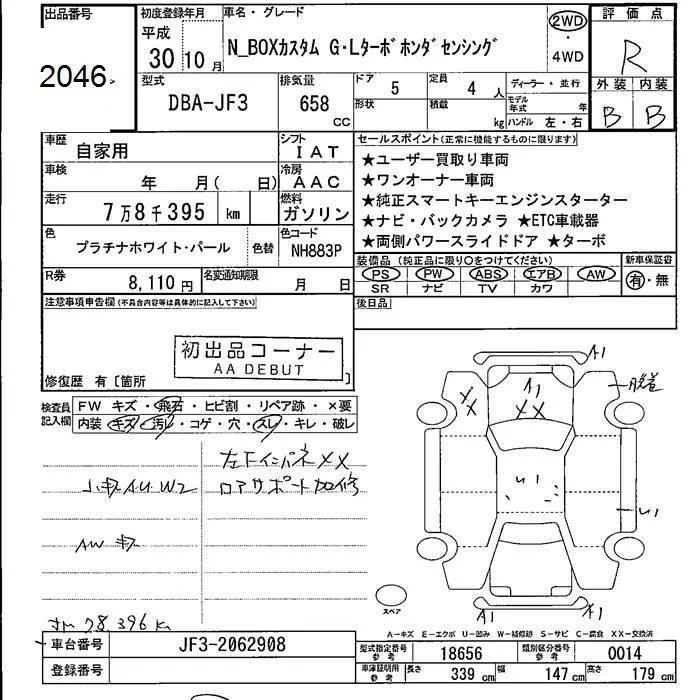 出品番号 初度登録年月 車名・グレード 評価点
2046
平成 30 10月 N_BOXカスタム G・Lターボホンダセンシング 2WD・4WD R
型式 排気量 ドア 5 定員 4人 ディーラー・並行 外装 内装
DBA-JF3 658 CC 形状 積載 kg モデル年式 年 ハンドル 左・右 B B
車歴 自家用 シフト IAT セールスポイント(正常に機能するものに限ります)
★ユーザー買取り車両
車検 年 月( 日) 冷房 AAC
★ワンオーナー車両
走行 7万8千395 km 燃料 ガソリン
★純正スマートキーエンジンスターター
★ナビ・バックカメラ ★ETC車載器
色 プラチナホワイト・パール 色替 色コード NH883P
★両側パワースライドドア ★ターボ
装備品(純正品に限り○をつけてください) 新車保証書
R券 8,110円 名変通知期限 月 日
PS PW ABS エアB AW 有・無
SR ナビ TV カワ
注意事項申告欄(不具合内容等は具体的に記入して下さい) 後日品
初出品コーナー
AA DEBUT
修復歴 有〔箇所 〕
検査員記入欄 FW キズ・飛石・ヒビ割・リペア跡・×要
内装 キズ・汚レ・コゲ・穴・スレ・キレ・破レ
左下インパネXX
小キズAU W2 ロアサポート加修
AW キズ
28,396 km
A1
A1
XX
XX
A1
A1
スペア
A-キズ E-エクボ U-凹み W-補修跡 S-サビ C-腐食 XX-交換済
車台番号 JF3-2062908
型式指定番号 参考 18656 類別区分番号 参考 0014
登録番号
車庫証明用 参考 長さ 339 cm 幅 147 cm 高さ 179 cm